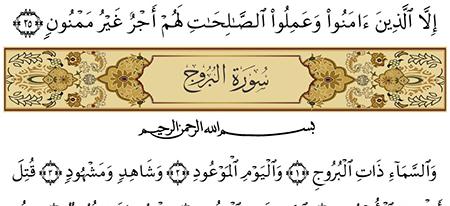 إِلَّا ٱلَّذِينَ ءَامَنُوا۟ وَعَمِلُوا۟ ٱلصَّـٰلِحَـٰتِ لَهُمْ أَجْرٌ غَيْرُ مَمْنُونٍۭ ﴿٢٥﴾
سُورَةُ البُرُوجِ
بسم الله الرحمن الرحيم
وَٱلسَّمَآءِ ذَاتِ ٱلْبُرُوجِ ﴿١﴾ وَٱلْيَوْمِ ٱلْمَوْعُودِ ﴿٢﴾ وَشَاهِدٍ وَمَشْهُودٍ ﴿٣﴾ قُتِلَ